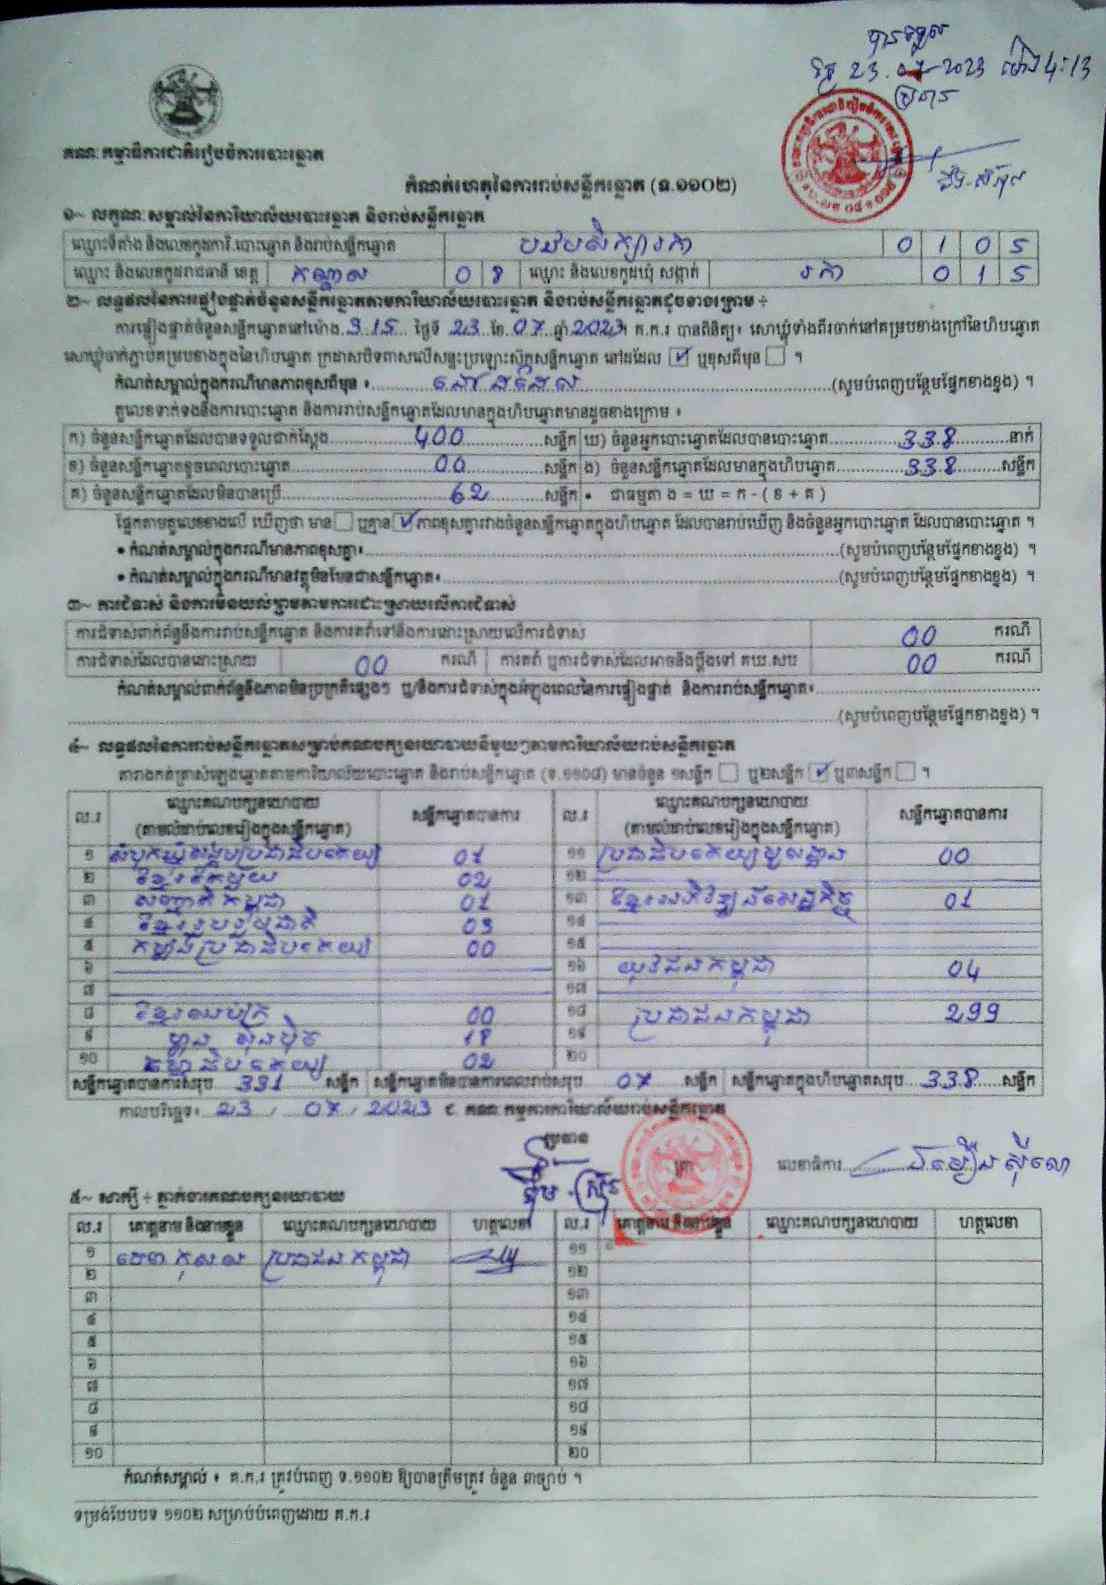 បានទទួល
ថ្ងៃ 23.07.2023 ម៉ោង 4:13
ប្រធាន
គណៈកម្មាធិការជាតិរៀបចំការបោះឆ្នោត
កំណត់ហេតុនៃការរាប់សន្លឹកឆ្នោត (ទ.១១០២)
១~ លក្ខណៈសម្គាល់នៃការិយាល័យបោះឆ្នោត និងរាប់សន្លឹកឆ្នោត
ឈ្មោះទីតាំង និងលេខកូដការិ.បោះឆ្នោត និងរាប់សន្លឹកឆ្នោត បឋមសិក្សារកា 0 1 0 5
ឈ្មោះ និងលេខកូដរាជធានី ខេត្ត កណ្ដាល 0 8 ឈ្មោះ និងលេខកូដឃុំ សង្កាត់ រកា 0 1 5
២~ លទ្ធផលនៃការផ្ទៀងផ្ទាត់ចំនួនសន្លឹកឆ្នោតតាមការិយាល័យបោះឆ្នោត និងរាប់សន្លឹកឆ្នោតដូចខាងក្រោម ÷
ការផ្ទៀងផ្ទាត់ចំនួនសន្លឹកឆ្នោតនៅម៉ោង 3:15 ថ្ងៃទី 23 ខែ 07 ឆ្នាំ 2023។ គ.ក.រ បានពិនិត្យ៖ សោឃ្លុំទាំងពីរចាក់នៅគម្របខាងក្រៅនៃហិបឆ្នោត
សោឃ្លុំចាក់ភ្ជាប់គម្របខាងក្នុងនៃហិបឆ្នោត ក្រដាសបិទពាសលើសន្ទះប្រឡោះស៊កសន្លឹកឆ្នោត នៅដដែល ☑ ឬខុសពីមុន ☐ ។
កំណត់សម្គាល់ក្នុងករណីមានភាពខុសពីមុន ៖ នៅដដែល (សូមបំពេញបន្ថែមផ្នែកខាងខ្នង) ។
តួលេខទាក់ទងនឹងការបោះឆ្នោត និងការរាប់សន្លឹកឆ្នោតដែលមានក្នុងហិបឆ្នោតមានដូចខាងក្រោម ៖
ក) ចំនួនសន្លឹកឆ្នោតដែលបានទទួលជាក់ស្ដែង 400 សន្លឹក ឃ) ចំនួនអ្នកបោះឆ្នោតដែលបានបោះឆ្នោត 338 នាក់
ខ) ចំនួនសន្លឹកឆ្នោតខូចពេលបោះឆ្នោត 00 សន្លឹក ង) ចំនួនសន្លឹកឆ្នោតដែលមានក្នុងហិបឆ្នោត 338 សន្លឹក
គ) ចំនួនសន្លឹកឆ្នោតដែលមិនបានប្រើ 62 សន្លឹក • ជាធម្មតា ង = ឃ = ក - ( ខ + គ )
ផ្អែកតាមតួលេខខាងលើ ឃើញថា មាន ☐ ឬគ្មាន ☑ ភាពខុសគ្នារវាងចំនួនសន្លឹកឆ្នោតក្នុងហិបឆ្នោត ដែលបានរាប់ឃើញ និងចំនួនអ្នកបោះឆ្នោត ដែលបានបោះឆ្នោត ។
• កំណត់សម្គាល់ក្នុងករណីមានភាពខុសគ្នា៖ (សូមបំពេញបន្ថែមផ្នែកខាងខ្នង) ។
• កំណត់សម្គាល់ក្នុងករណីមានវត្ថុមិនមែនជាសន្លឹកឆ្នោត៖ (សូមបំពេញបន្ថែមផ្នែកខាងខ្នង) ។
៣~ ការជំទាស់ និងការមិនយល់ព្រមតាមការដោះស្រាយលើការជំទាស់
ការជំទាស់ពាក់ព័ន្ធនឹងការរាប់សន្លឹកឆ្នោត និងការតវ៉ាទៅនឹងការដោះស្រាយលើការជំទាស់ 00 ករណី
ការជំទាស់ដែលបានដោះស្រាយ 00 ករណី ការតវ៉ា ឬការជំទាស់ដែលអាចនឹងប្ដឹងទៅ គឃ.សប 00 ករណី
កំណត់សម្គាល់ពាក់ព័ន្ធនឹងភាពមិនប្រក្រតីផ្សេងៗ ឬ/និងការជំទាស់ក្នុងអំឡុងពេលនៃការផ្ទៀងផ្ទាត់ និងការរាប់សន្លឹកឆ្នោត៖
(សូមបំពេញបន្ថែមផ្នែកខាងខ្នង) ។
៤~ លទ្ធផលនៃការរាប់សន្លឹកឆ្នោតសម្រាប់គណបក្សនយោបាយនីមួយៗតាមការិយាល័យរាប់សន្លឹកឆ្នោត
តារាងកត់ត្រាសំឡេងឆ្នោតតាមការិយាល័យបោះឆ្នោត និងរាប់សន្លឹកឆ្នោត (ទ.១១០៨) មានចំនួន ១សន្លឹក ☐ ឬ២សន្លឹក ☑ ឬ៣សន្លឹក ☐ ។
ល.រ ឈ្មោះគណបក្សនយោបាយ (តាមលំដាប់លេខរៀងក្នុងសន្លឹកឆ្នោត) សន្លឹកឆ្នោតបានការ ល.រ ឈ្មោះគណបក្សនយោបាយ (តាមលំដាប់លេខរៀងក្នុងសន្លឹកឆ្នោត) សន្លឹកឆ្នោតបានការ
១ សំបុកឃ្មុំសង្គមប្រជាធិបតេយ្យ 01 ១១ ប្រជាធិបតេយ្យមូលដ្ឋាន 00
២ ខ្មែរឈប់ក្រ 02 ១២
៣ សញ្ជាតិកម្ពុជា 01 ១៣ ខ្មែរអភិវឌ្ឍន៍សេដ្ឋកិច្ច 01
៤ ខ្មែររួបរួមជាតិ 03 ១៤
៥ កម្លាំងប្រជាធិបតេយ្យ 00 ១៥
៦ ១៦ យុវជនកម្ពុជា 04
៧ ១៧
៨ ខ្មែរឈប់ក្រ 00 ១៨ ប្រជាជនកម្ពុជា 299
៩ ហ្វុន ស៊ិនប៉ិច 18 ១៩
១០ ធម្មាធិបតេយ្យ 02 ២០
សន្លឹកឆ្នោតបានការសរុប 331 សន្លឹក សន្លឹកឆ្នោតមិនបានការពេលរាប់សរុប 07 សន្លឹក សន្លឹកឆ្នោតក្នុងហិបឆ្នោតសរុប 338 សន្លឹក
កាលបរិច្ឆេទ៖ 23 / 07 / 2023 ៩. គណៈកម្មការការិយាល័យរាប់សន្លឹកឆ្នោត
ប្រធាន
លេខាធិការ
៥~ សាក្សី ÷ ភ្នាក់ងារគណបក្សនយោបាយ
ល.រ គោត្តនាម និងនាមខ្លួន ឈ្មោះគណបក្សនយោបាយ ហត្ថលេខា ល.រ គោត្តនាម និងនាមខ្លួន ឈ្មោះគណបក្សនយោបាយ ហត្ថលេខា
១ ចេខា កុសល ប្រជាជនកម្ពុជា ១១
២ ១២
៣ ១៣
៤ ១៤
៥ ១៥
៦ ១៦
៧ ១៧
៨ ១៨
៩ ១៩
១០ ២០
កំណត់សម្គាល់ ៖ គ.ក.រ ត្រូវបំពេញ ទ.១១០២ ឱ្យបានត្រឹមត្រូវ ចំនួន ៣ច្បាប់ ។
ទម្រង់បែបបទ ១១០២ សម្រាប់បំពេញដោយ គ.ក.រ